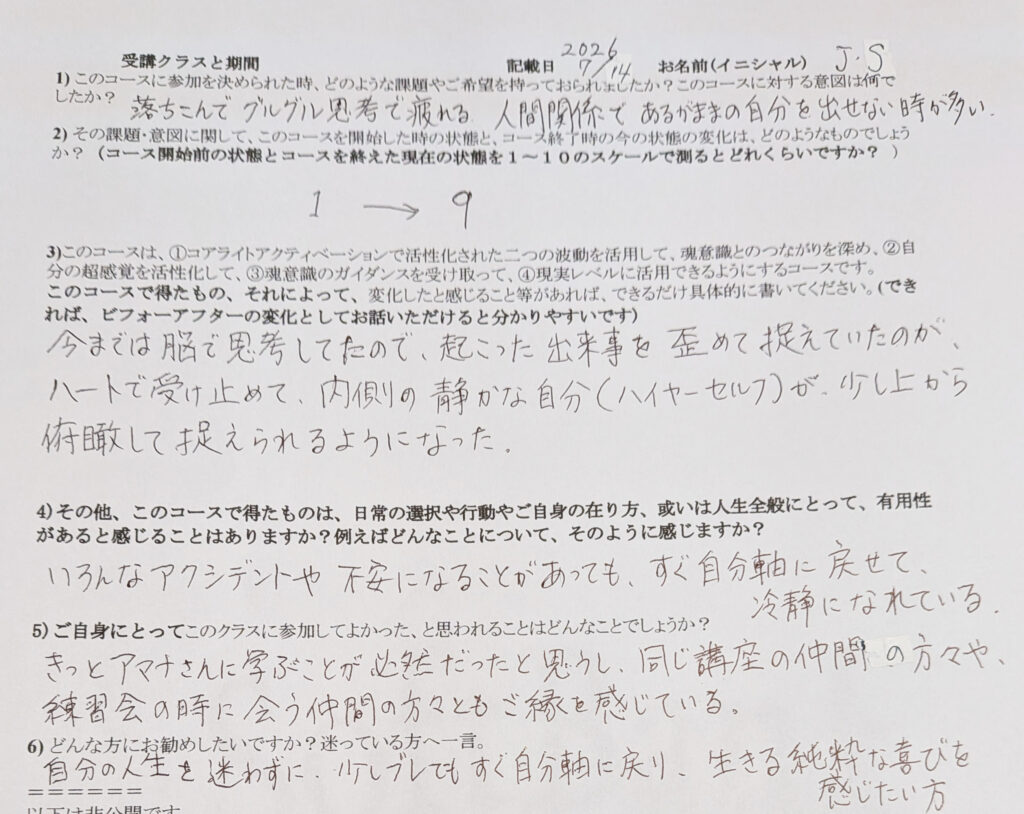 受講クラスと期間 記載日 2026 7/14 お名前(イニシャル) J.S
1) このコースに参加を決められた時、どのような課題やご希望を持っておられましたか？このコースに対する意図は何で
したか？ 落ちこんで グルグル思考で疲れる 人間関係で あるがままの自分を出せない時が多い.
2) その課題・意図に関して、このコースを開始した時の状態と、コース終了時の今の状態の変化は、どのようなものでしょう
か？（コース開始前の状態とコースを終えた現在の状態を１～１０のスケールで測るとどれくらいですか？ ）
1 → 9
3)このコースは、①コアライトアクティベーションで活性化された二つの波動を活用して、魂意識とのつながりを深め、②自
分の超感覚を活性化して、③魂意識のガイダンスを受け取って、④現実レベルに活用できるようにするコースです。
このコースで得たもの、それによって、変化したと感じること等があれば、できるだけ具体的に書いてください。(でき
れば、ビフォーアフターの変化としてお話いただけると分かりやすいです)
今までは脳で思考してたので、起こった出来事を歪めて捉えていたのが、
ハートで受け止めて、内側の静かな自分(ハイヤーセルフ)が、少し上から
俯瞰して捉えられるようになった。
4)その他、このコースで得たものは、日常の選択や行動やご自身の在り方、或いは人生全般にとって、有用性
があると感じることはありますか？例えばどんなことについて、そのように感じますか？
いろんなアクシデントや不安になることがあっても、すぐ自分軸に戻せて、
冷静になれている.
5) ご自身にとってこのクラスに参加してよかった、と思われることはどんなことでしょうか？
きっとアマナさんに学ぶことが必然だったと思うし、同じ講座の仲間の方々や、
練習会の時に会う仲間の方々ともご縁を感じている。
6) どんな方にお勧めしたいですか？迷っている方へ一言。
自分の人生を迷わずに、少しブレてもすぐ自分軸に戻り、生きる純粋な喜びを
感じたい方
======
以下は非公開です